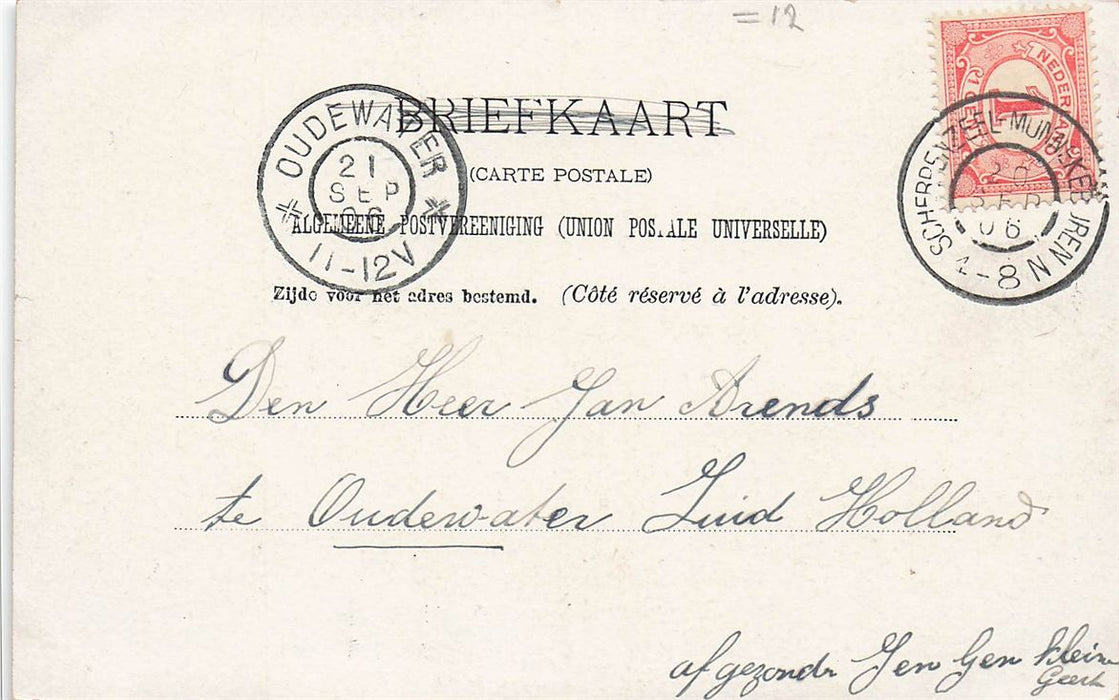 =12
BRIEFKAART
(CARTE POSTALE)
ALGEMEENE POSTVEREENIGING (UNION POSTALE UNIVERSELLE)
Zijde voor het adres bestemd. (Côté réservé à l'adresse).
OUDEWATER
21
SEP
06
11-12V
NEDERL
1 CENT
1
SCHERPENZEEL-MUNNEKEBUREN
20
SEP
06
4-8N
Den Heer Jan Arends
te Oudewater Zuid Holland
afgezondn Jen Gen klein
Geerts